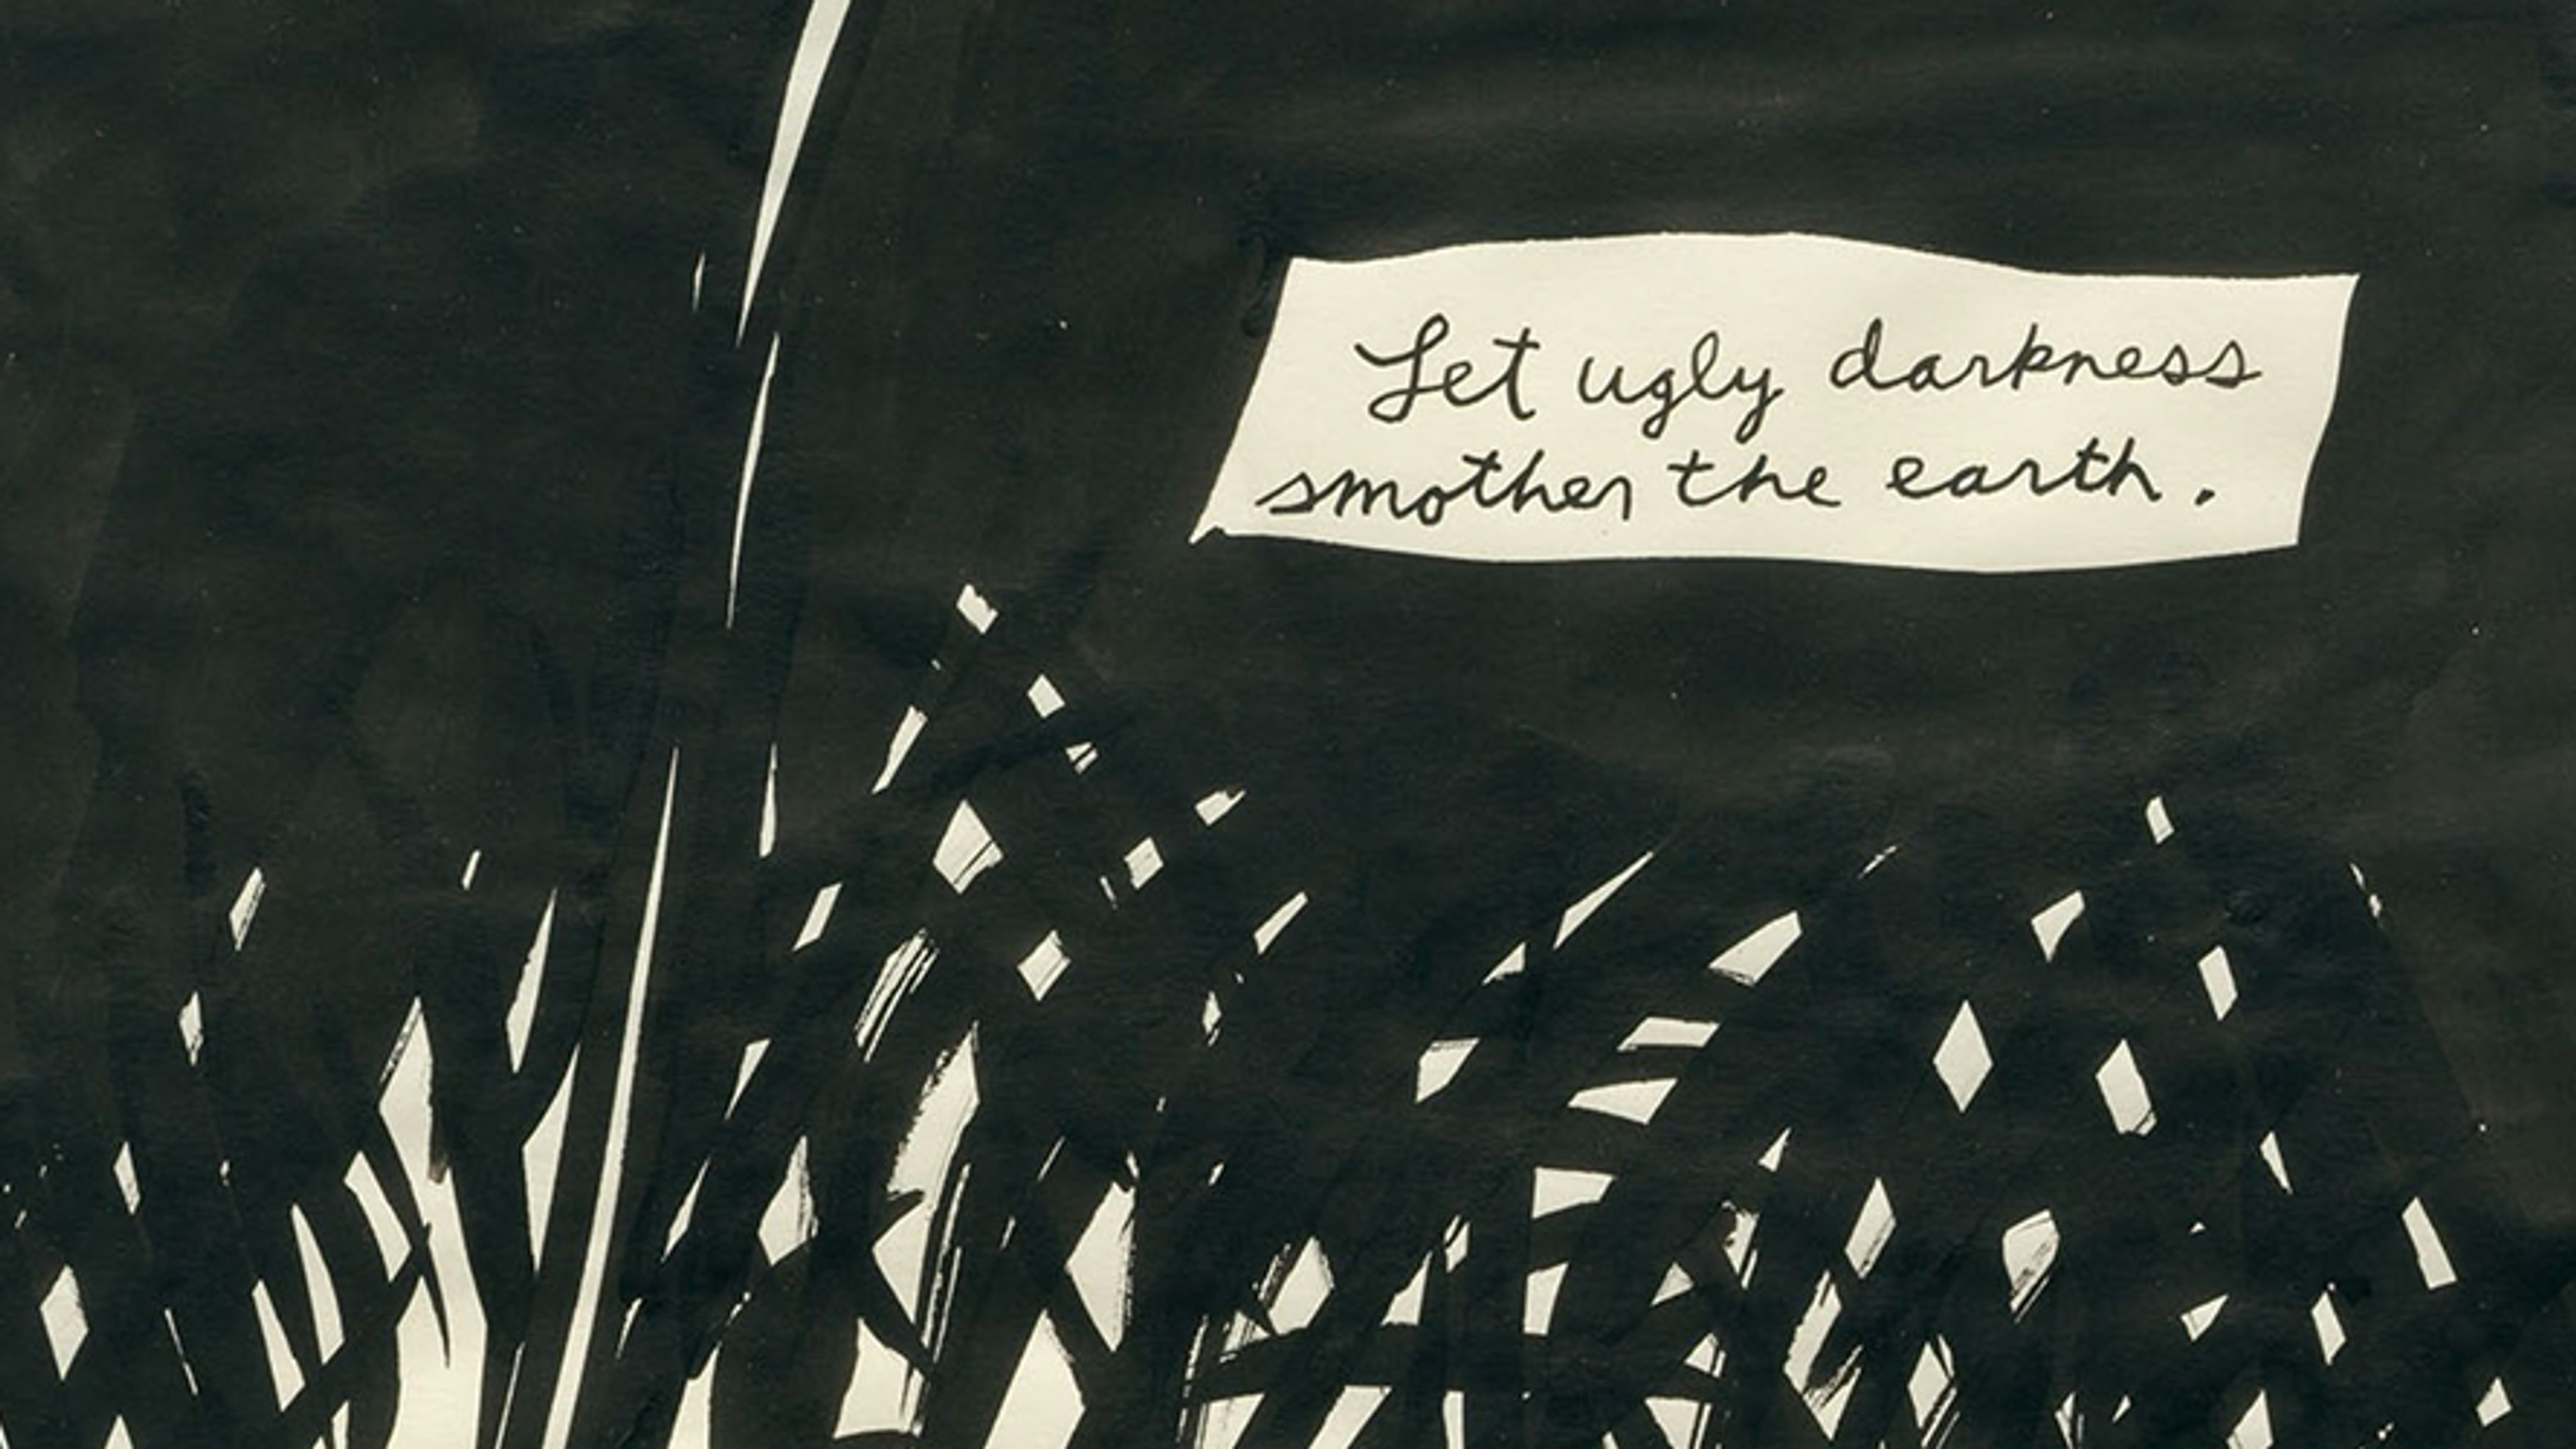 Let ugly darkness
smother the earth.